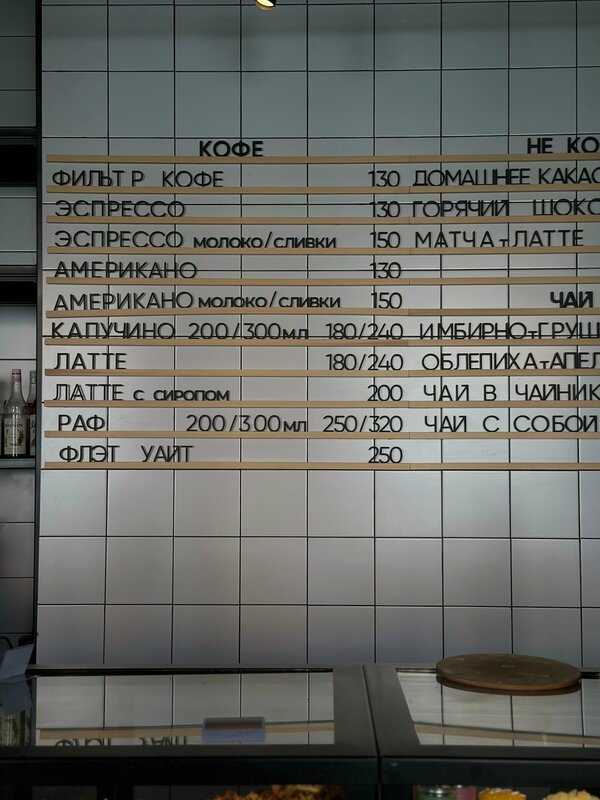 КОФЕ
ФИЛЬТР КОФЕ 130
ЭСПРЕССО 130
ЭСПРЕССО молоко/сливки 150
АМЕРИКАНО 130
АМЕРИКАНО молоко/сливки 150
КАПУЧИНО 200/300мл 180/240
ЛАТТЕ 180/240
ЛАТТЕ с сиропом 200
РАФ 200/300мл 250/320
ФЛЭТ УАЙТ 250
НЕ КО
ДОМАШНЕЕ КАКАО
ГОРЯЧИЙ ШОКО
МАТЧА-ЛАТТЕ
ЧАЙ
ИМБИРНО-ГРУШ
ОБЛЕПИХА-АПЕЛ
ЧАЙ В ЧАЙНИК
ЧАЙ С СОБОЙ